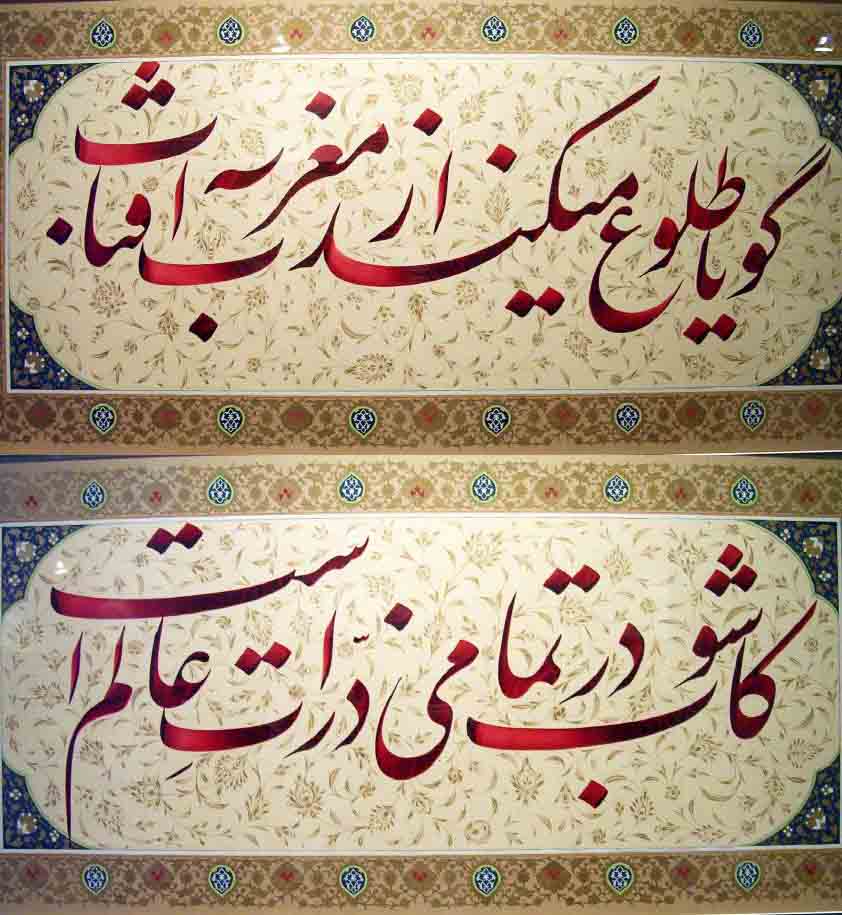 گویا طلوع میکند از مغرب آفتاب
کاشوب در تمامی ذرّات عالم است